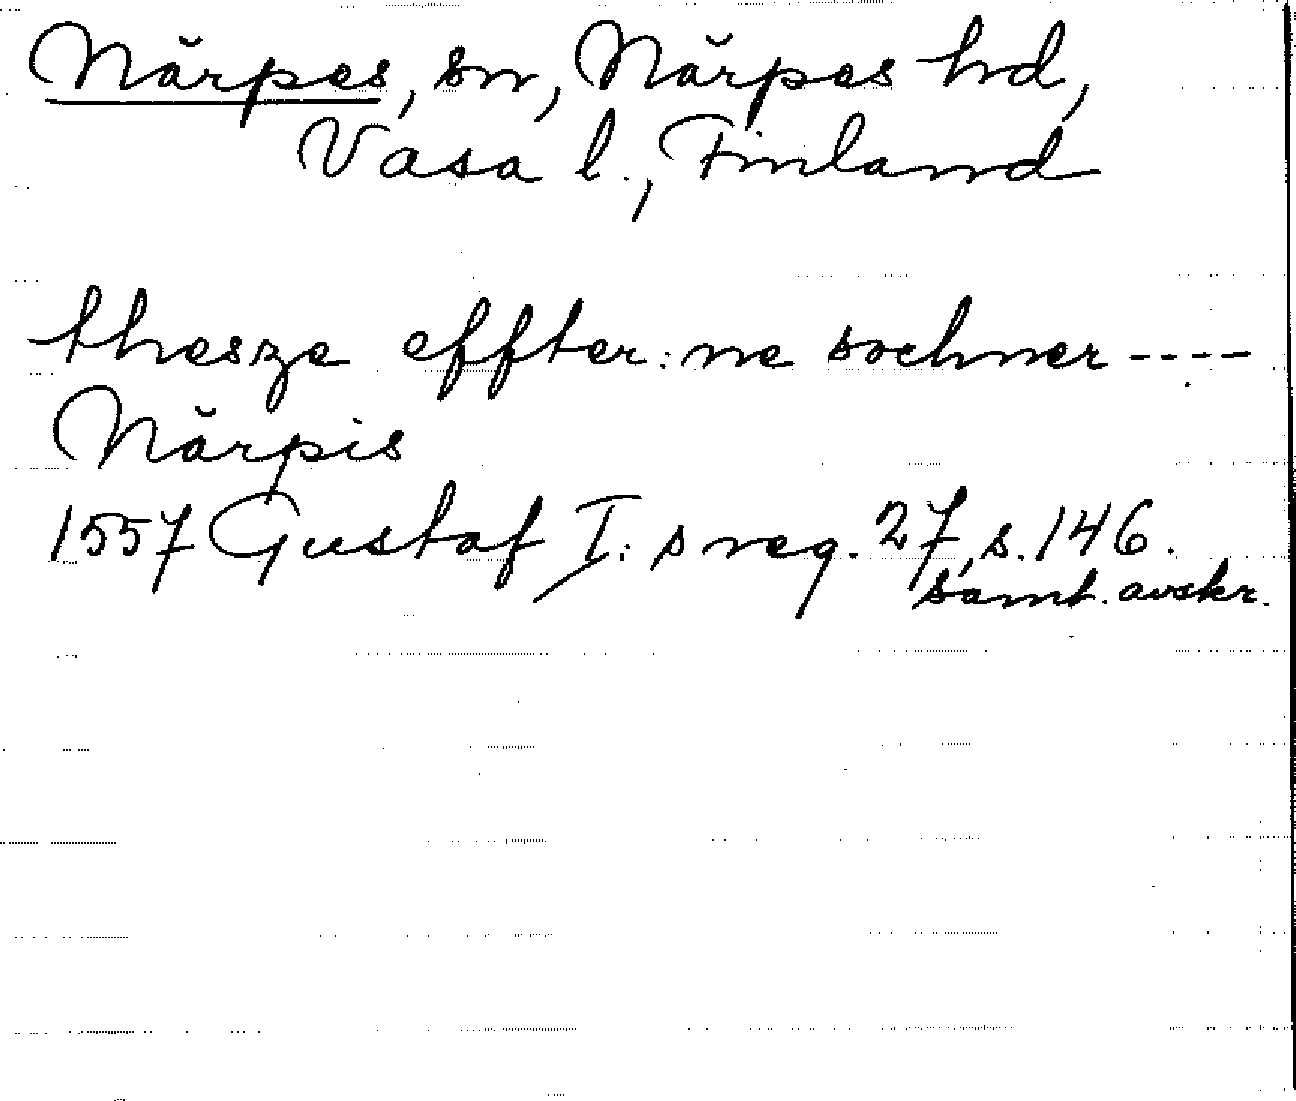 Närpes, sn, Närpes hd,
Vasa l., Finland
thesze effter:ne sochner ----
Närpis
1557 Gustaf I:s reg. 27, s. 146.
samt. avskr.